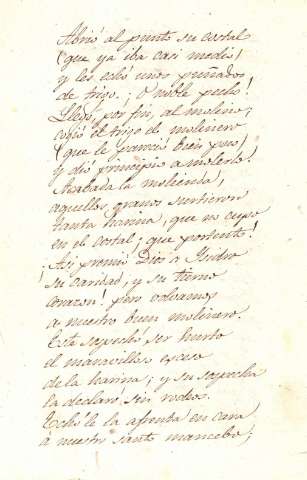 Abrió al punto su costal
(que ya iba casi medio)
y les echó unos puñados
de trigo. ¡O noble pecho!
Llegó, por fin, al molino;
cojió el trigo el molinero
(que le pareció bien poco)
y dió principio a molerlo.
Acabada la molienda,
aquellos granos surtieron
tanta harina, que no cupo
en el costal; ¡que portento!
¡Asi premió Dios a Isidro
su caridad, y su tierno
corazon! pero volvamos
a nuestro buen molinero.
Este sospechó ser hurto
el maravilloso exceso
de la harina; y su sospecha
la declaró sin rodeos.
Echóle la afrenta en cara
à nuestro santo mancebo;